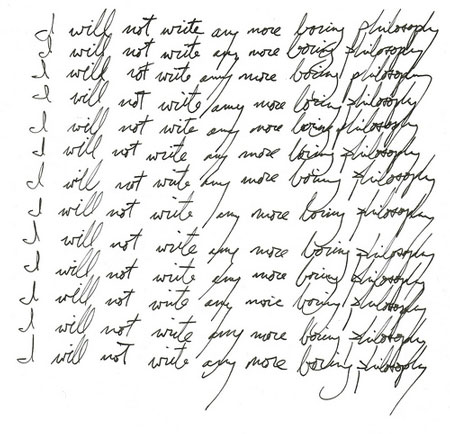 I will not write any more boring philosophy
I will not write any more boring philosophy
I will not write any more boring philosophy
I will not write any more boring philosophy
I will not write any more boring philosophy
I will not write any more boring philosophy
I will not write any more boring philosophy
I will not write any more boring philosophy
I will not write any more boring philosophy
I will not write any more boring philosophy
I will not write any more boring philosophy
I will not write any more boring philosophy
I will not write any more boring philosophy